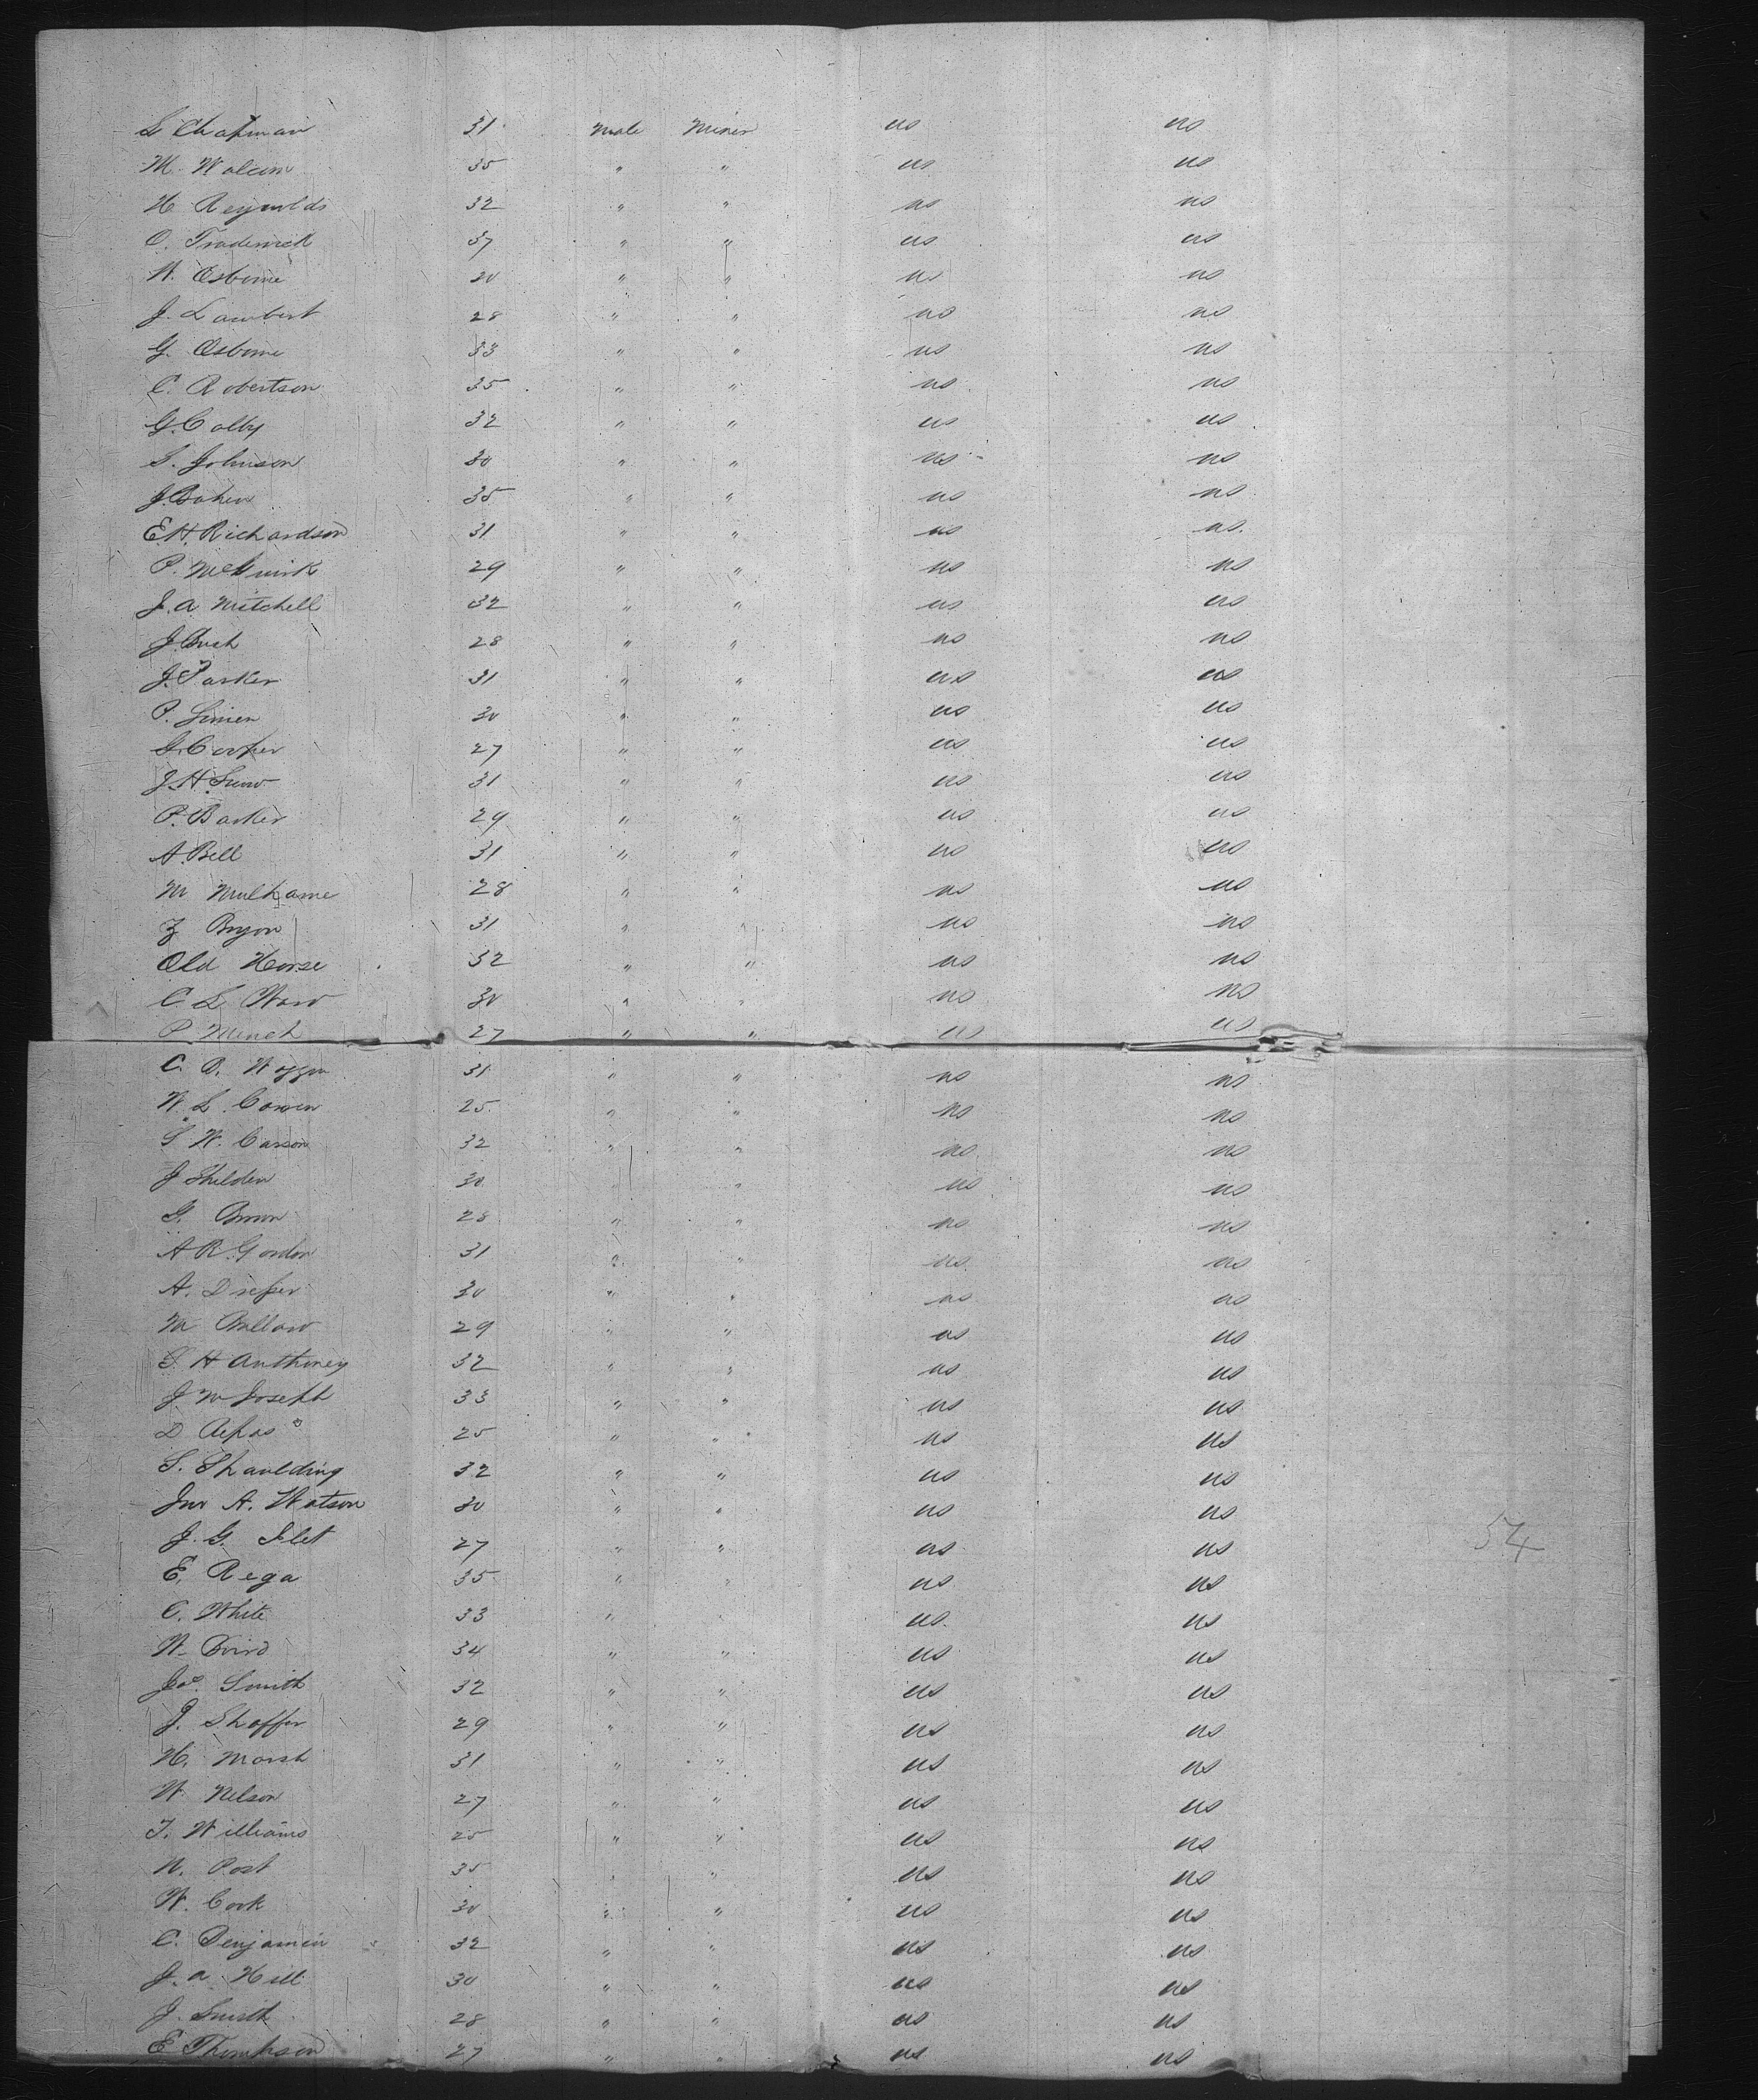 S Chapman 31 Male Miner US US
M. Walcun 35 " " US US
H Reynolds 32 " " US US
O. Traderrick 37 " " US US
W. Osborne 30 " " US US
J. Lambert 28 " " US US
G. Osborne 33 " " US US
C. Robertson 35 " " US US
G. Colby 32 " " US US
S. Johnson 30 " " US US
J. Baker 35 " " US US
E.H. Richardson 31 " " US US.
P. McGuirk 29 " " US US
J. A Mitchell 32 " " US US
J. Bush 28 " " US US
J. Parker 31 " " US US
P. 30 " " US US
G. Cooper 27 " " US US
J. H. Snow 31 " " US US
P. Barker 29 " " US US
A. Bell 31 " " US US
M 28 " " US US
Z Bryon 31 " " US US
Old Horse 32 " " US US
C. L. Ward 30 " " US US
P. Minch 27 " " US US
C. B. 31 " " US US
W. L. Cowen 25 " " US US
S W. Carson 32 " " US US
J Shelden 30 " US US
G. Brown 28 " " US US
A R. Gordon 31 " " US US
A. Dresser 30 " " US US
M Ballard 29 " " US US
S. H Anthoney 32 " " US US
J M Joseph 33 " " US US
D 25 " " US US
S. Spaulding 32 " " US US
Jno A. Watson 30 " " US US
J. G. Islet 27 " " US US
54
E. Rega 35 " " US US
C. White 33 " US. US
W. Baird 34 " " US US
Jos. Smith 32 " " US US
J. Shaffer 29 " " US US
H. Marsh 31 " " US US
W. Nelson 27 " " US US
T. Williams 25 " " US US
N. Post 35 " " US US
W. Cook 30 " " US US
C. Benjamin 32 " " US US
J. A Hill 30 " " US US
J. Smith 28 " " US US
E Thompson 27 " " US US